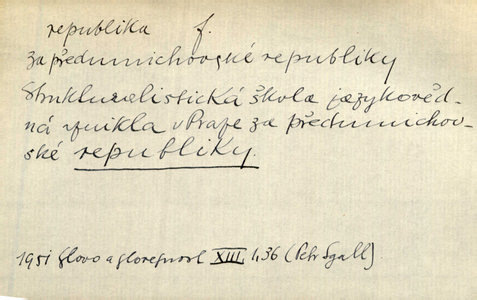 republika f.
za předmnichovské republiky
Strukturalistická škola jazykověd-
ná vznikla v Praze za předmnichov-
ské republiky.
1951 Slovo a slovesnost XIII 1,36 (Petr Sgall)